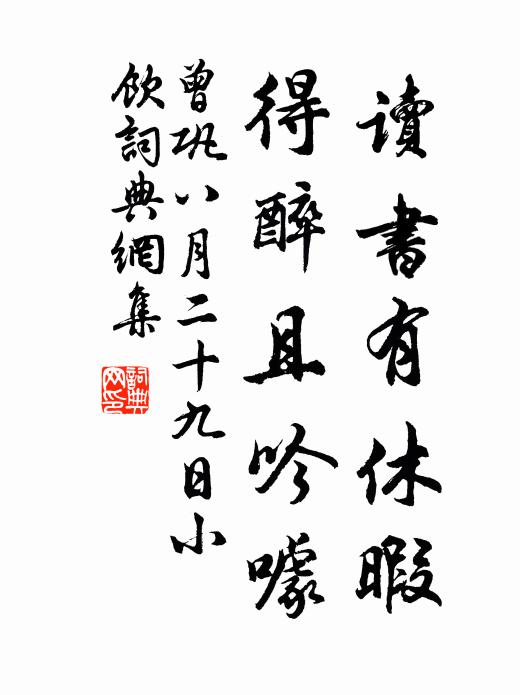 讀書有休暇
得醉且吟噱
曾鞏八月二十九日小
飲詞典網集
詞典
网印